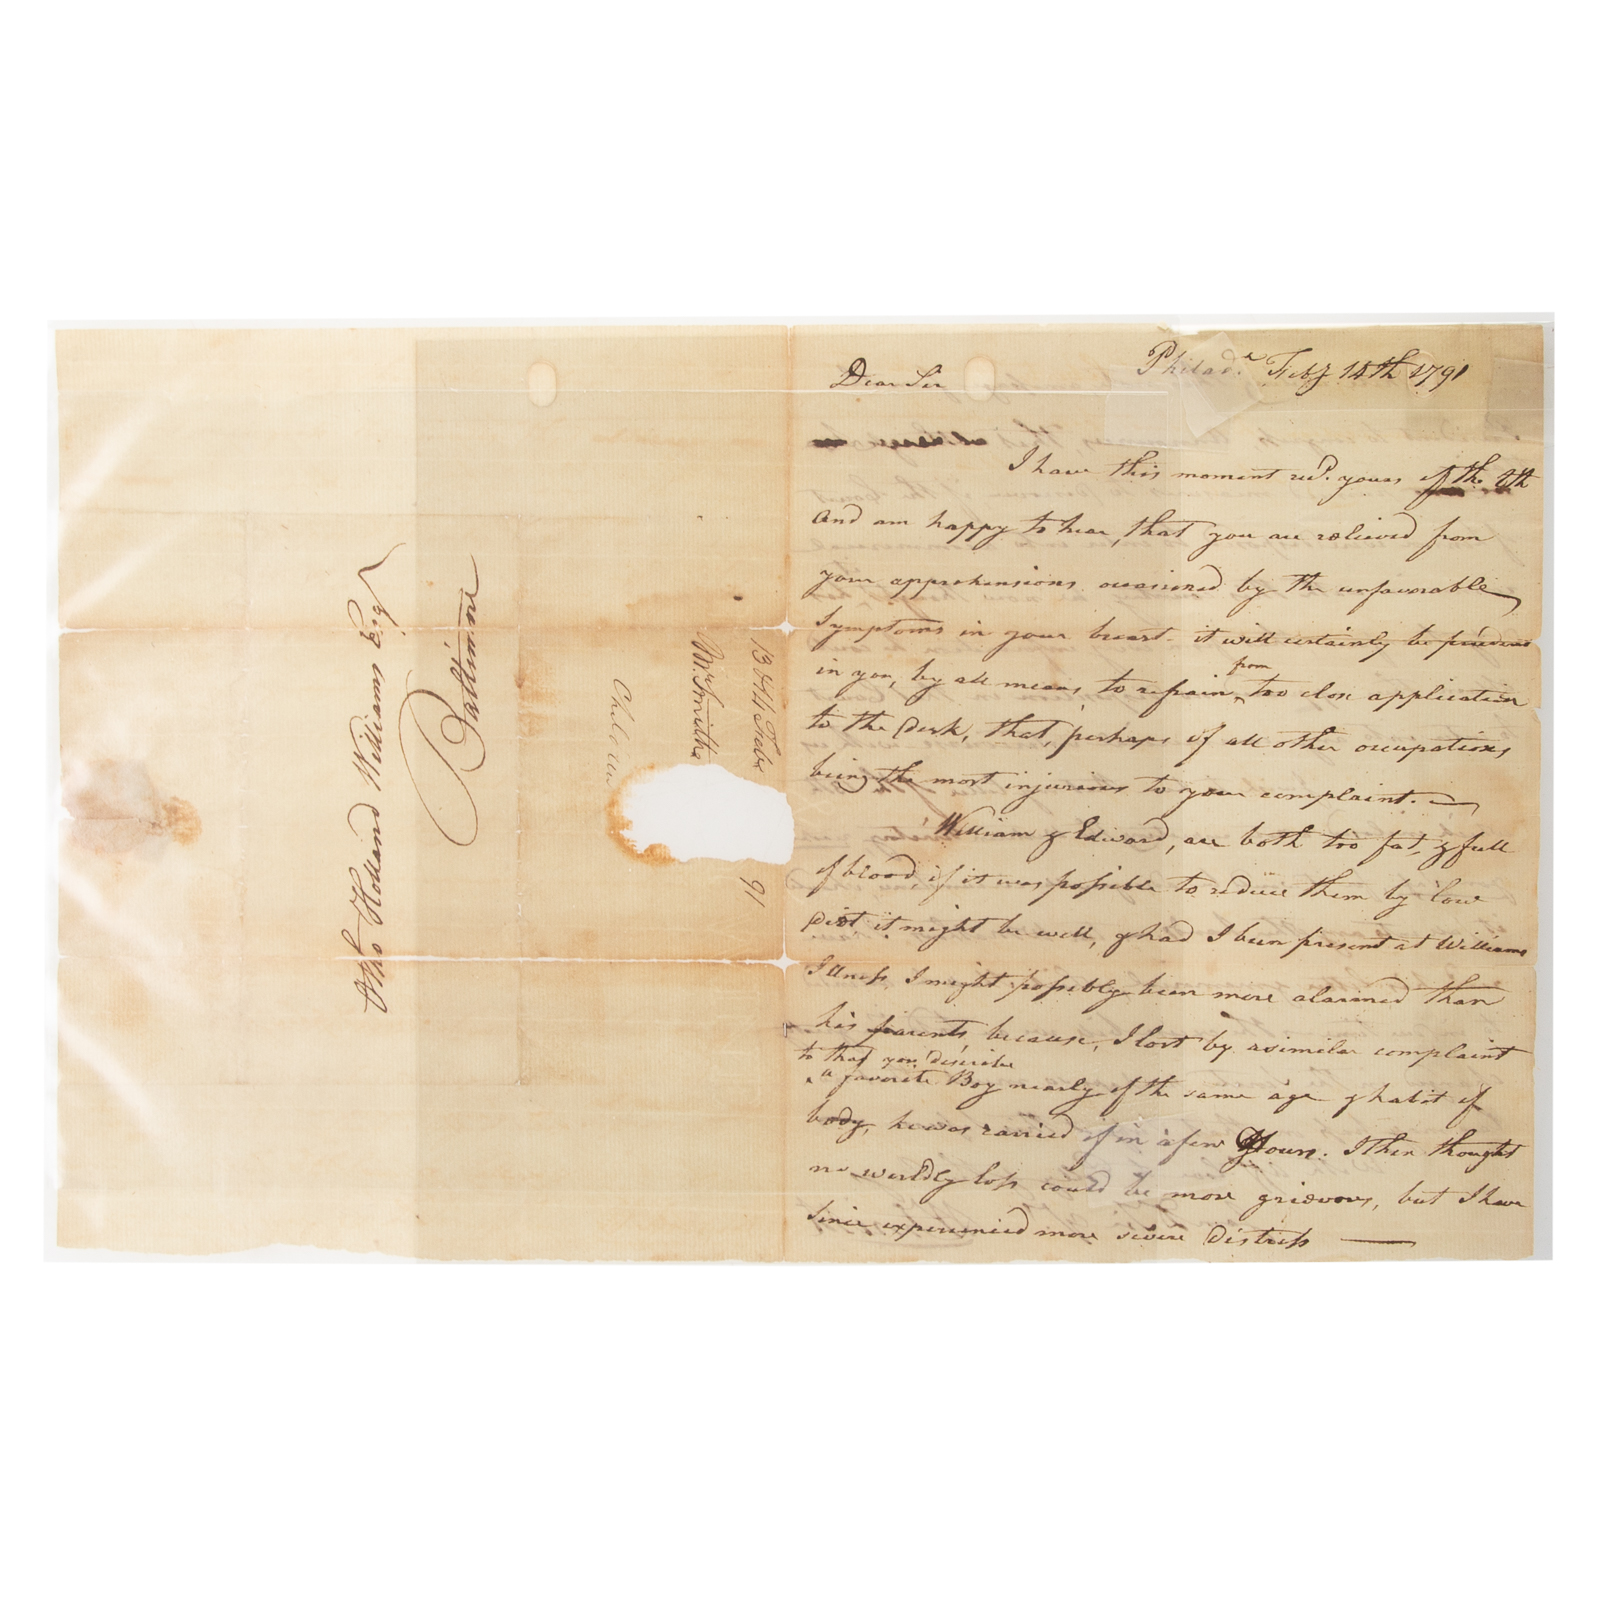 Otho Holland Williams Esqr
Baltimore
Mr. Smith
13 & 14 Feby
91
Philada. Feby 14th 1791
Dear Sir
I have this moment recd. yours of the 8th
and am happy to hear, that you are relieved from
your apprehensions occasioned by the unfavorable
Symptoms in your breast - it will certainly be prudent
in you, by all means, to refrain from too close application
to the Desk, that, perhaps of all other occupations
being the most injurious to your complaint. —
William & Edward, are both too fat, & full
of blood, if it was possible to reduce them by low
Diet, it might be well, & had I been present at Williams
Illness, I might possibly been more alarmed than
his parents, because, I lost by a similar complaint
to that you describe
a favorite Boy nearly of the same age & habit of
body, he was carried of in a few Hours. I then thought
no worldly loss could be more grievous, but I have
since experienced more severe Distress —